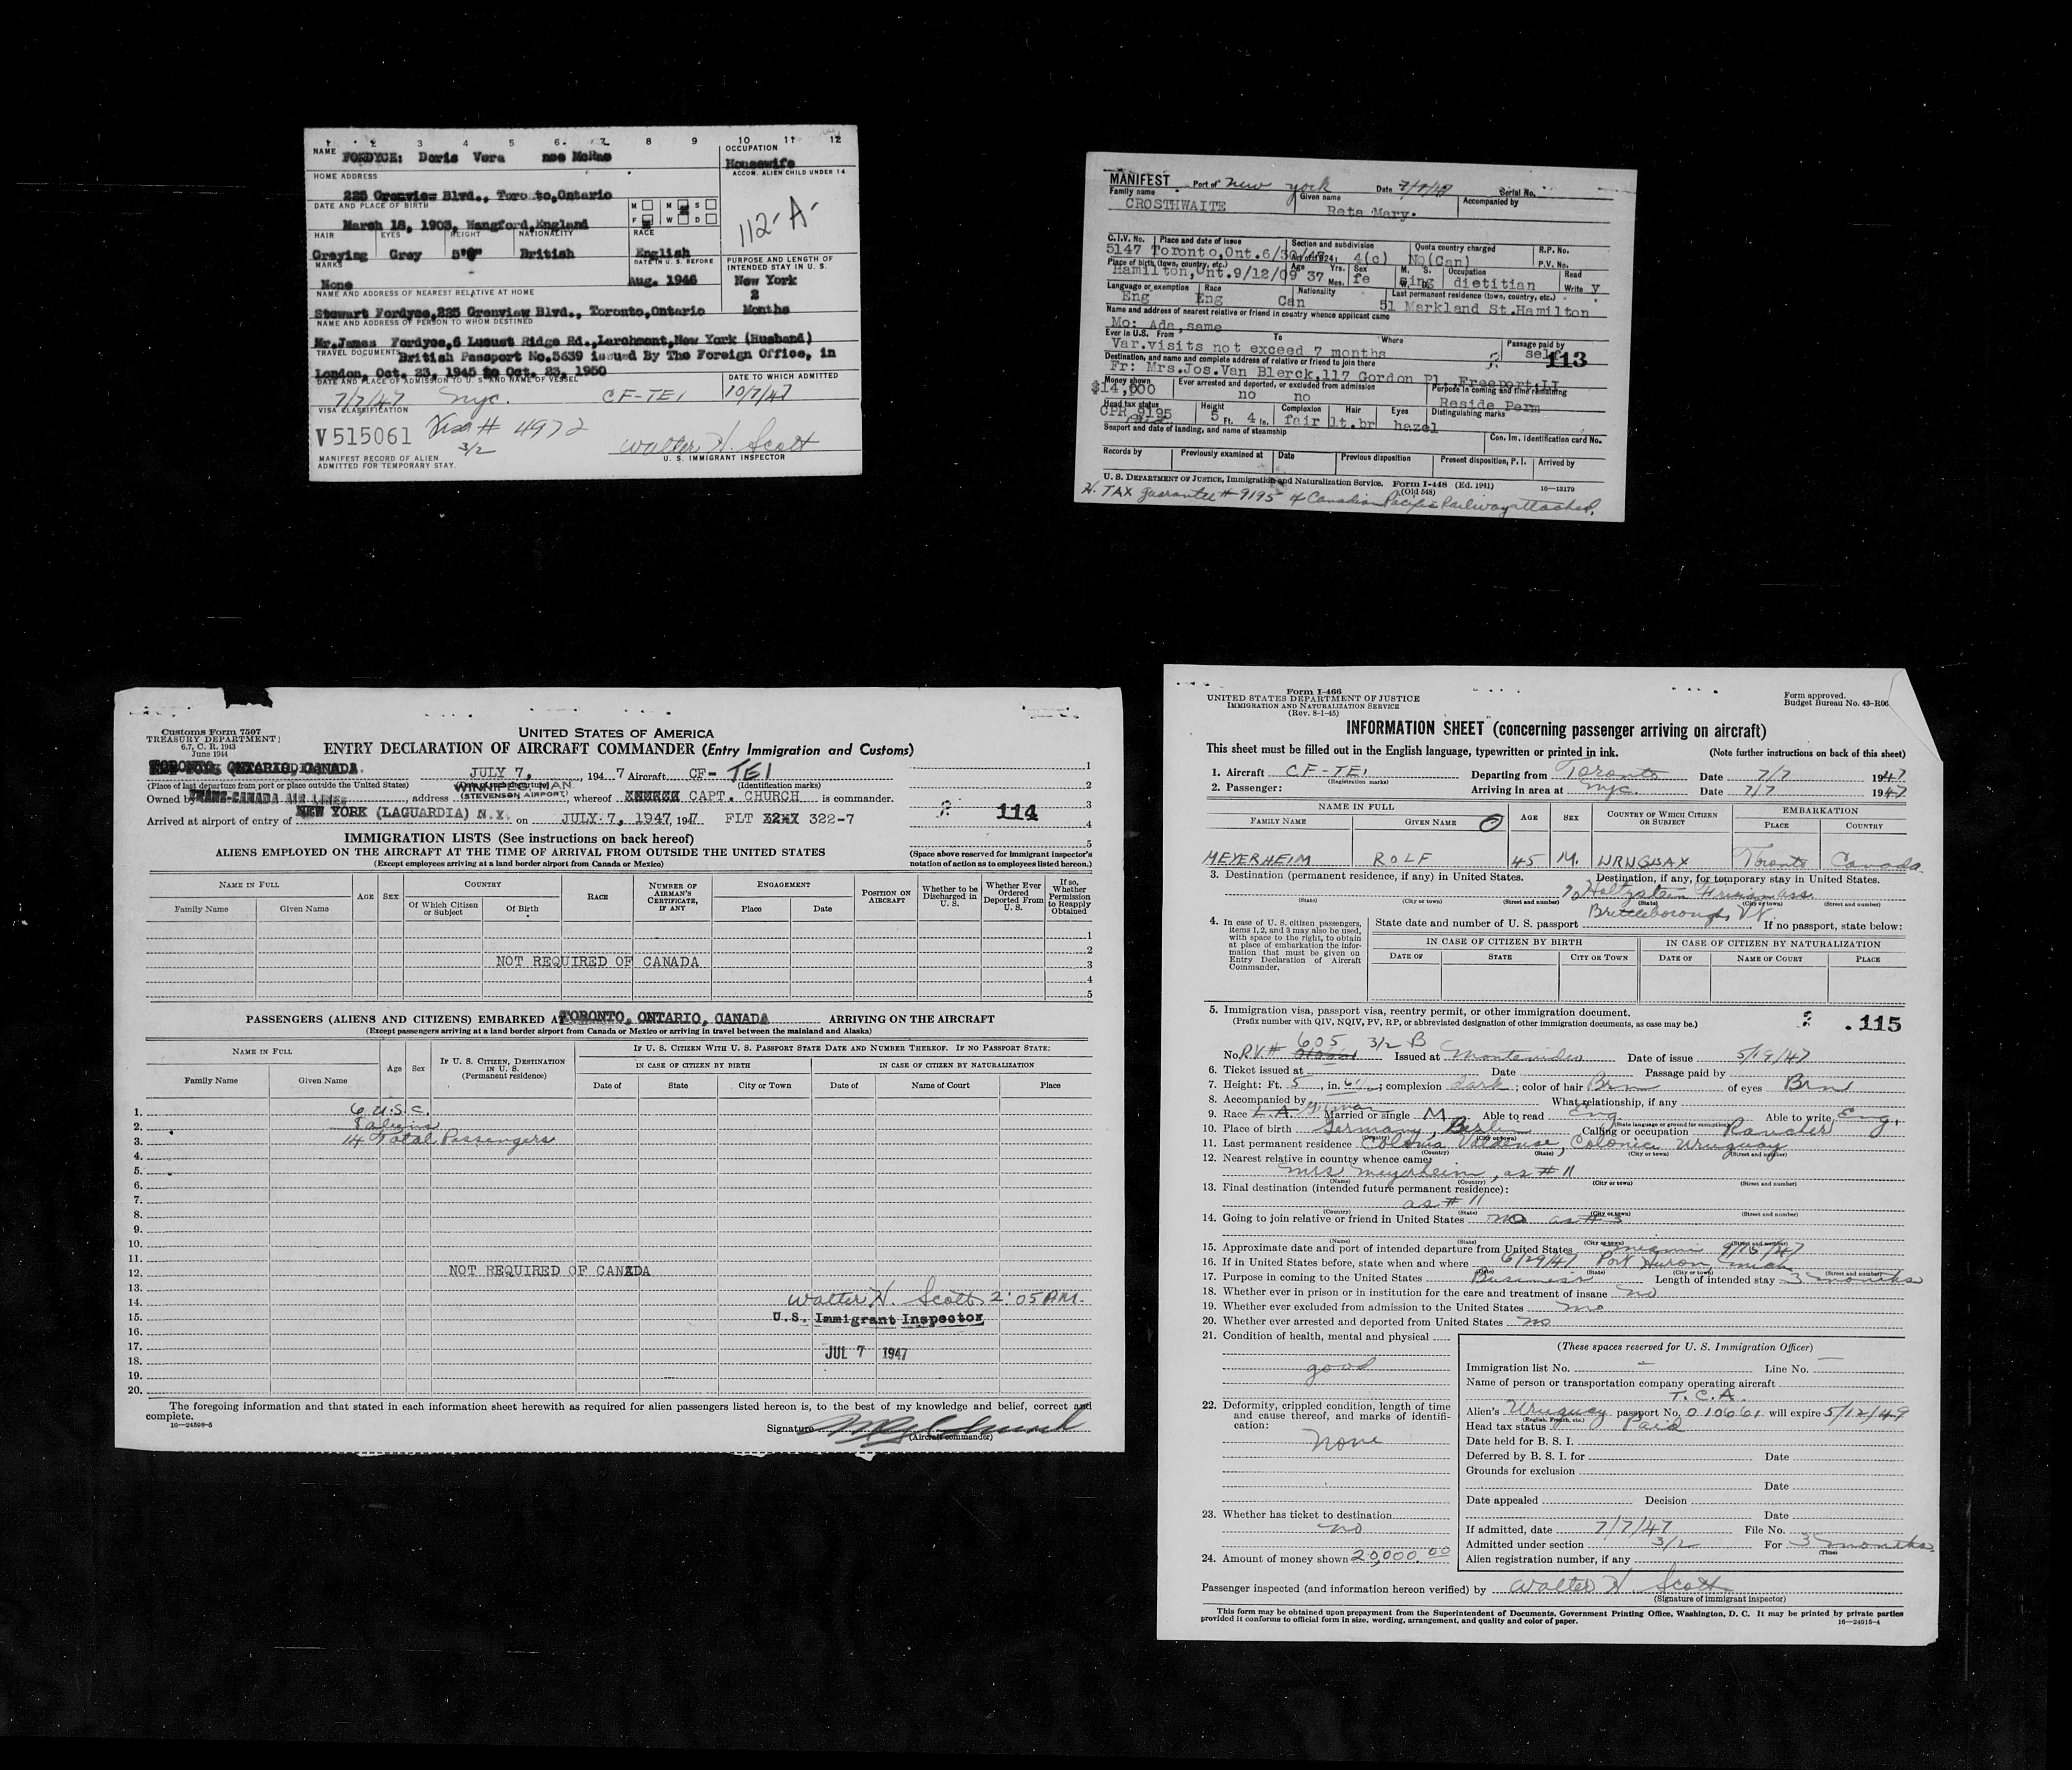 1 2 3 4 5 6 7 8 9 10 11 12
NAME FORDYCE: Doris Vera nee McRae
OCCUPATION
Housewife
ACCOM. ALIEN CHILD UNDER 14
HOME ADDRESS
225 Grenview Blvd., Toronto,Ontario
DATE AND PLACE OF BIRTH
M M S
F W D
112-A-
March 18, 1903, Hangford,England
HAIR EYES HEIGHT NATIONALITY RACE
Greying Grey British English
MARKS
None
DATE IN U. S. BEFORE
Aug. 1946
PURPOSE AND LENGTH OF INTENDED STAY IN U. S.
New York
2
Months
NAME AND ADDRESS OF NEAREST RELATIVE AT HOME
Stewart Fordyce,225 Grenview Blvd., Toronto,Ontario
NAME AND ADDRESS OF PERSON TO WHOM DESTINED
Mr.James Fordyce,6 Lucust Ridge Rd.,Larchmont,New York (Husband)
TRAVEL DOCUMENTS British Passport No.5639 issued By The Foreign Office, in
London, Oct. 23, 1945 to Oct. 23, 1950
DATE AND PLACE OF ADMISSION TO U. S. AND NAME OF VESSEL
DATE TO WHICH ADMITTED
7/7/47 NYC. CF-TEI 10/7/47
VISA CLASSIFICATION
V 515061 Visa # 4972
3/2
Walter H. Scott
U. S. IMMIGRANT INSPECTOR
MANIFEST RECORD OF ALIEN
ADMITTED FOR TEMPORARY STAY.
MANIFEST Port of New York Date 7/7/47 Serial No.
Family name Given name Accompanied by
CROSTHWAITE Reta Mary.
C.I.V. No. Place and date of issue Section and subdivision Quota country charged R.P. No.
5147 Toronto,Ont.6/30/47 Act of 1924 4(c) NQ(Can) P.V. No.
Place of birth (town, country, etc.) Age Yrs. Mos. Sex M. S. W. D. Occupation Read Write
Hamilton,Ont.9/12/09 37 fe sing dietitian y
Language or exemption Race Nationality Last permanent residence (town, country, etc.)
Eng Eng Can 51 Markland St.Hamilton
Name and address of nearest relative or friend in country whence applicant came
Mo: Ada,same
Ever in U.S. From To Where Passage paid by
Var.visits not exceed 7 months self 113
Destination, and name and complete address of relative or friend to join there
Fr: Mrs.Jos.Van Blerck,117 Gordon Pl.,Freeport,LI
Money shown Ever arrested and deported, or excluded from admission Purpose in coming and time remaining
$14,000 no no Reside Perm
Head tax status Height Complexion Hair Eyes Distinguishing marks
CPR 9195 5 Ft. 4 In. fair lt.br hazel
Seaport and date of landing, and name of steamship Con. Im. Identification card No.
Records by Previously examined at Date Previous disposition Present disposition, P. I. Arrived by
U. S. DEPARTMENT OF JUSTICE, Immigration and Naturalization Service. Form I-448 (Ed. 1941)
(Old 548) 16—13179
H. TAX guarantee # 9195 of Canadian Pacific Railway attached.
Customs Form 7507
TREASURY DEPARTMENT
6.7, C. R. 1943
June 1944
UNITED STATES OF AMERICA
ENTRY DECLARATION OF AIRCRAFT COMMANDER (Entry Immigration and Customs)
TORONTO, ONTARIO, CANADA. JULY 7, 194 7 Aircraft CF- TEI
(Place of last departure from port or place outside the United States) (Identification marks)
Owned by TRANS-CANADA AIR LINES, address WINNIPEG, MAN (STEVENSON AIRPORT), whereof CAPT. CHURCH is commander.
Arrived at airport of entry of NEW YORK (LAGUARDIA) N.Y. on JULY 7, 1947, 1947 FLT 322-7
1
2
3
114
4
5
IMMIGRATION LISTS (See instructions on back hereof)
ALIENS EMPLOYED ON THE AIRCRAFT AT THE TIME OF ARRIVAL FROM OUTSIDE THE UNITED STATES
(Except employees arriving at a land border airport from Canada or Mexico)
(Space above reserved for immigrant inspector's notation of action as to employees listed hereon.)
NAME IN FULL AGE SEX COUNTRY RACE NUMBER OF AIRMAN'S CERTIFICATE, IF ANY ENGAGEMENT POSITION ON AIRCRAFT Whether to be Discharged in U. S. Whether Ever Ordered Deported From U. S. If so, Whether Permission to Reapply Obtained
Family Name Given Name Of Which Citizen or Subject Of Birth Place Date
1
2
NOT REQUIRED OF CANADA 3
4
5
PASSENGERS (ALIENS AND CITIZENS) EMBARKED AT TORONTO, ONTARIO, CANADA ARRIVING ON THE AIRCRAFT
(Except passengers arriving at a land border airport from Canada or Mexico or arriving in travel between the mainland and Alaska)
NAME IN FULL Age Sex IF U. S. CITIZEN, DESTINATION IN U. S. (Permanent residence) IF U. S. CITIZEN WITH U. S. PASSPORT STATE DATE AND NUMBER THEREOF. IF NO PASSPORT STATE:
IN CASE OF CITIZEN BY BIRTH IN CASE OF CITIZEN BY NATURALIZATION
Family Name Given Name Date of State City or Town Date of Name of Court Place
1. 6 U.S.C.
2. 8 aliens
3. 14 Total Passengers
4.
5.
6.
7.
8.
9.
10.
11.
12. NOT REQUIRED OF CANADA
13.
14. Walter H. Scott 2:05 AM.
15. U.S. Immigrant Inspector
16.
17. JUL 7 1947
18.
19.
20.
The foregoing information and that stated in each information sheet herewith as required for alien passengers listed hereon is, to the best of my knowledge and belief, correct and complete.
16—24598-5
Signature
(Aircraft commander)
Form I-466
UNITED STATES DEPARTMENT OF JUSTICE
IMMIGRATION AND NATURALIZATION SERVICE
(Rev. 8-1-45)
Form approved.
Budget Bureau No. 43-R06
INFORMATION SHEET (concerning passenger arriving on aircraft)
This sheet must be filled out in the English language, typewritten or printed in ink. (Note further instructions on back of this sheet)
1. Aircraft CF-TEI Departing from Toronto Date 7/7 1947
(Registration marks)
2. Passenger: Arriving in area at NYC. Date 7/7 1947
NAME IN FULL AGE SEX COUNTRY OF WHICH CITIZEN OR SUBJECT EMBARKATION
FAMILY NAME GIVEN NAME PLACE COUNTRY
MEYERHEIM ROLF 45 M. URUGUAY Toronto Canada.
3. Destination (permanent residence, if any) in United States. Destination, if any, for temporary stay in United States.
(State) (City or town) (Street and number) (State) (City or town) (Street and number)
Brattleborough, Vt.
4. In case of U. S. citizen passengers, items 1, 2, and 3 may also be used, with space to the right, to obtain at place of embarkation the information that must be given on Entry Declaration of Aircraft Commander.
State date and number of U. S. passport If no passport, state below:
IN CASE OF CITIZEN BY BIRTH IN CASE OF CITIZEN BY NATURALIZATION
DATE OF STATE CITY OR TOWN DATE OF NAME OF COURT PLACE
5. Immigration visa, passport visa, reentry permit, or other immigration document.
(Prefix number with QIV, NQIV, PV, RP, or abbreviated designation of other immigration documents, as case may be.)
115
605 3/2 B
No. P.V.# Issued at Montevideo Date of issue 5/19/47
6. Ticket issued at Date Passage paid by
7. Height: Ft. 5, in. 6½; complexion dark; color of hair Brn of eyes Brn
8. Accompanied by What relationship, if any
9. Race German Married or single M Able to read Eng Able to write Eng.
(State language or ground for exemption)
10. Place of birth Germany, Berlin Calling or occupation Rancher
(Country) (City or town)
11. Last permanent residence Colonia Valdense, Colonia Uruguay
(Country) (State) (City or town) (Street and number)
12. Nearest relative in country whence came:
Mrs Meyerheim, as # 11
(Name) (Country) (City or town) (Street and number)
13. Final destination (intended future permanent residence):
as # 11
(Country) (State) (City or town) (Street and number)
14. Going to join relative or friend in United States no as # 3
(Name) (State) (City or town) (Street and number)
15. Approximate date and port of intended departure from United States Miami 9/15/47
16. If in United States before, state when and where 6/29/47 Port Huron, Mich
(Date) (State) (City or town) (Street and number)
17. Purpose in coming to the United States Business Length of intended stay 3 months
18. Whether ever in prison or in institution for the care and treatment of insane no
19. Whether ever excluded from admission to the United States no
20. Whether ever arrested and deported from United States no
21. Condition of health, mental and physical
good
22. Deformity, crippled condition, length of time and cause thereof, and marks of identification:
none
23. Whether has ticket to destination
no
24. Amount of money shown 20,000.00
(These spaces reserved for U. S. Immigration Officer)
Immigration list No. – Line No. –
Name of person or transportation company operating aircraft
T.C.A.
Alien's Uruguay passport No. 010661 will expire 5/12/49
(English, French, etc.)
Head tax status Paid
Date held for B. S. I.
Deferred by B. S. I. for Date
Grounds for exclusion
Date
Date appealed Decision
Date
If admitted, date 7/7/47 File No.
Admitted under section 3/2 For 3 months
(Time)
Alien registration number, if any
Passenger inspected (and information hereon verified) by Walter H. Scott
(Signature of immigrant inspector)
This form may be obtained upon prepayment from the Superintendent of Documents, Government Printing Office, Washington, D. C. It may be printed by private parties provided it conforms to official form in size, wording, arrangement, and quality and color of paper.
16—24915-4